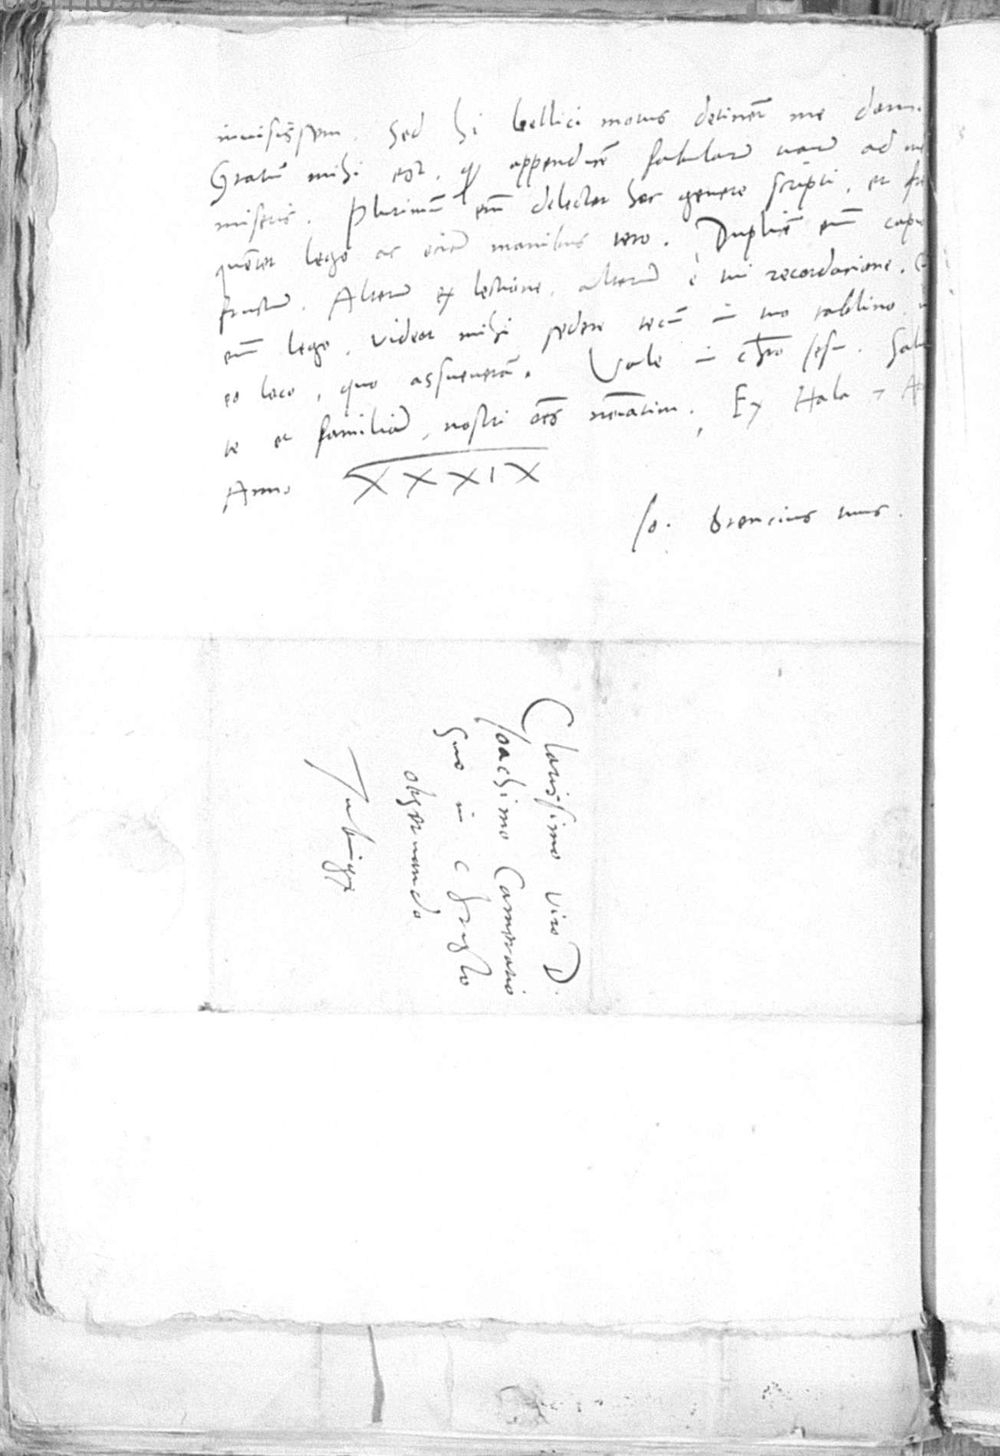 inuisissem. Sed hi bellici motus detinēt me dom
Gratū mihi est, q appendicē fabularū tuarū ad me
miseris. Plurimū em̄ delector hoc genere scripti, et fre
quēter lego ac etiā manibus tero. Duplicē em̄ capi
fructū. Alterū ex lectione, alterū è tui recordacione. C
em̄ lego, videor mihi sedere tecū in tuo tablino,
eo loco, quo assueuerā. Vale in chro Iesu. Salu
te et familiā, nostri oēs nēatim. Ex Hala 7 A
Anno XXXIX
Io. Brencius tuus.
Clarissimo viro D.
Ioachimo Camerario
suo in chrysto
obseruando
Tubingę